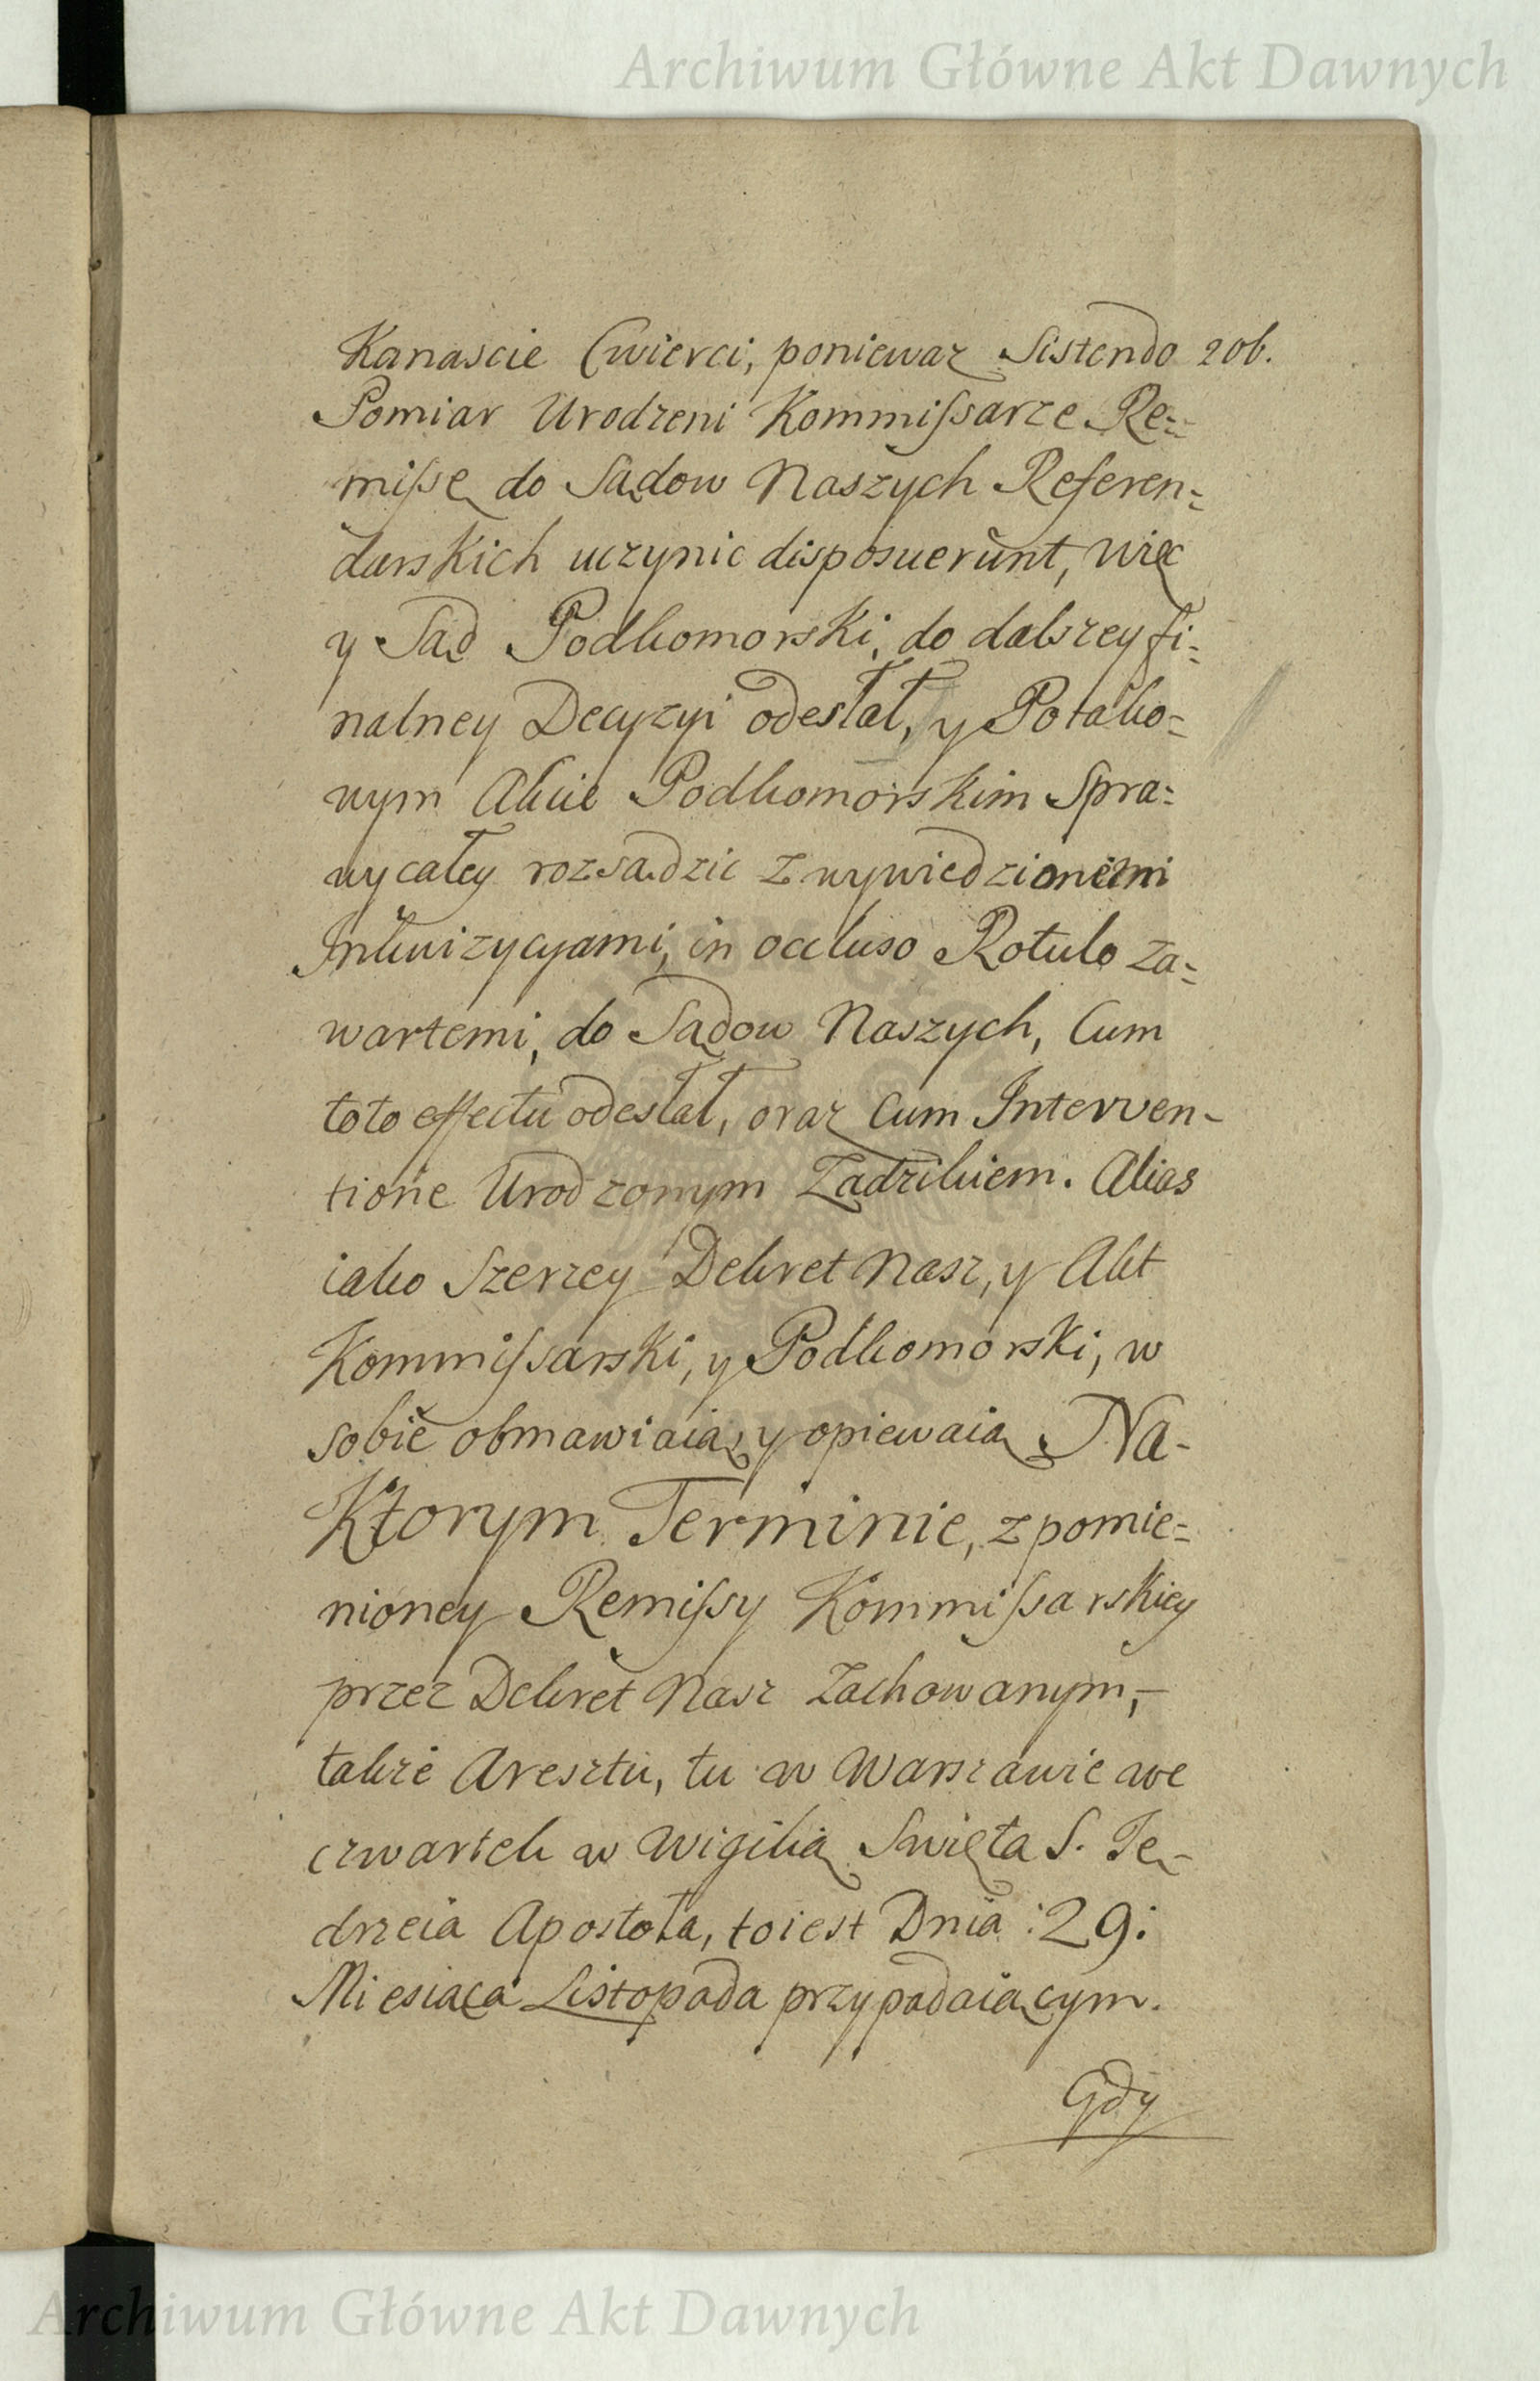 Archiwum Główne Akt Dawnych
Kanascie Cwierci, poniewaz Sistendo 206.
Pomiar Urodzeni Kommissarze Re=
missę do Sądow Naszych Referen=
darskich uczynic disposuerunt, więc
y Sąd Podkomorski, do dalszey fi=
nalney Decyzyi odesłał, y Potako=
wym Akcie Podkomorskim Spra=
wy całey rozsądzic z wywiedzionemi
Inkwizycyami, in occluso Rotulo za=
wartemi, do Sądow Naszych, Cum
toto effectu odesłał, oraz Cum Interven-
tione Urodzonym Zadzikiem. Alias
iako Szerzey Dekret Nasz, y Akt
Kommissarski, y Podkomorski, w
sobie obmawiaią, y opiewaią Na-
Ktorym Terminie, z pomie=
nioney Remissy Kommissarskiey
przez Dekret Nasz Zachowanym,-
takze Aresztu, tu w Warszawie we
czwartek w wigilią Swięta S. Ję-
drzeia Apostoła, to iest Dnia :29:
Miesiąca Listopada przypadaiącym.
Gdy
Archiwum Główne Akt Dawnych